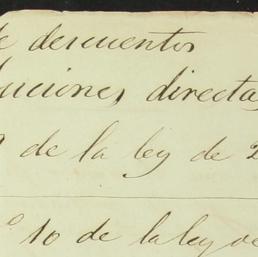 de descuentos
buciones directas
9 de la ley de 2
º 10 de la ley de